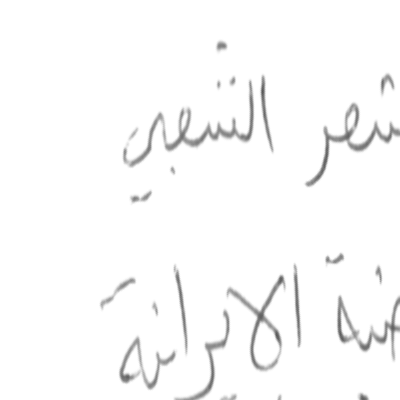 شعر الشعبي
الايرانية